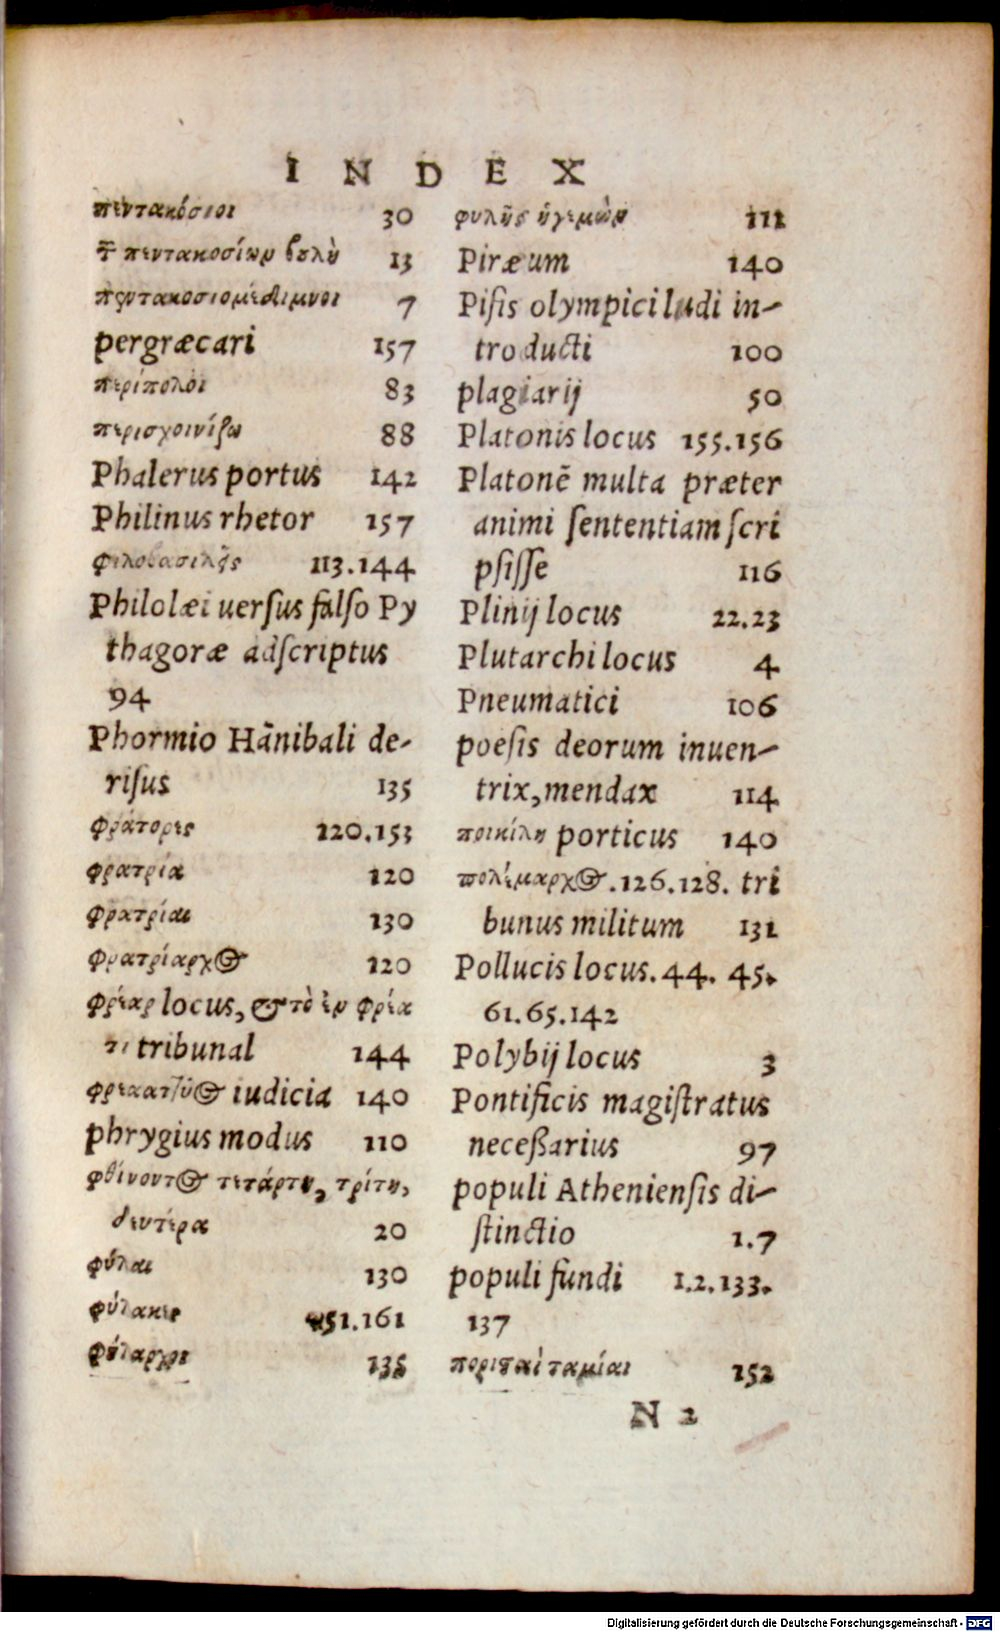 INDEX
πεντακόσιοι 30
τ πεντακοσίων βουλὴ 13
πεντακοσιομέδιμνοι 7
pergræcari 157
περίπολοι 83
περισχοινίζω 88
Phalerus portus 142
Philinus rhetor 157
φιλοβασιλῆς 113.144
Philolæi uerſus falſo Py
thagoræ adſcriptus
94
Phormio Hānibali de-
riſus 135
φράτορες 120.153
φρατρία 120
φρατρίαι 130
φρατρίαρχος 120
φρέαρ locus, & τὸ ἐν φρέα
τι tribunal 144
iudicia 140
phrygius modus 110
φθίνοντος τετάρτη, τρίτη,
δευτέρα 20
φύλαι 130
φύλακες 151.161
φύλαρχοι 135
φυλῆς ἡγεμὼν 111
Piræum 140
Piſis olympici ludi in-
troducti 100
plagiarij 50
Platonis locus 155.156
Platonē multa præter
animi ſententiam ſcri
pſiſſe 116
Plinij locus 22.23
Plutarchi locus 4
Pneumatici 106
poeſis deorum inuen-
trix, mendax 114
ποικίλη porticus 140
πολέμαρχος. 126.128. tri
bunus militum 131
Pollucis locus. 44. 45.
61.65.142
Polybij locus 3
Pontificis magiſtratus
neceßarius 97
populi Athenienſis di-
ſtinctio 1.7
populi fundi 1.2.133.
137
πορισταὶ ταμίαι 152
N 2
Digitalisierung gefördert durch die Deutsche Forschungsgemeinschaft - DFG